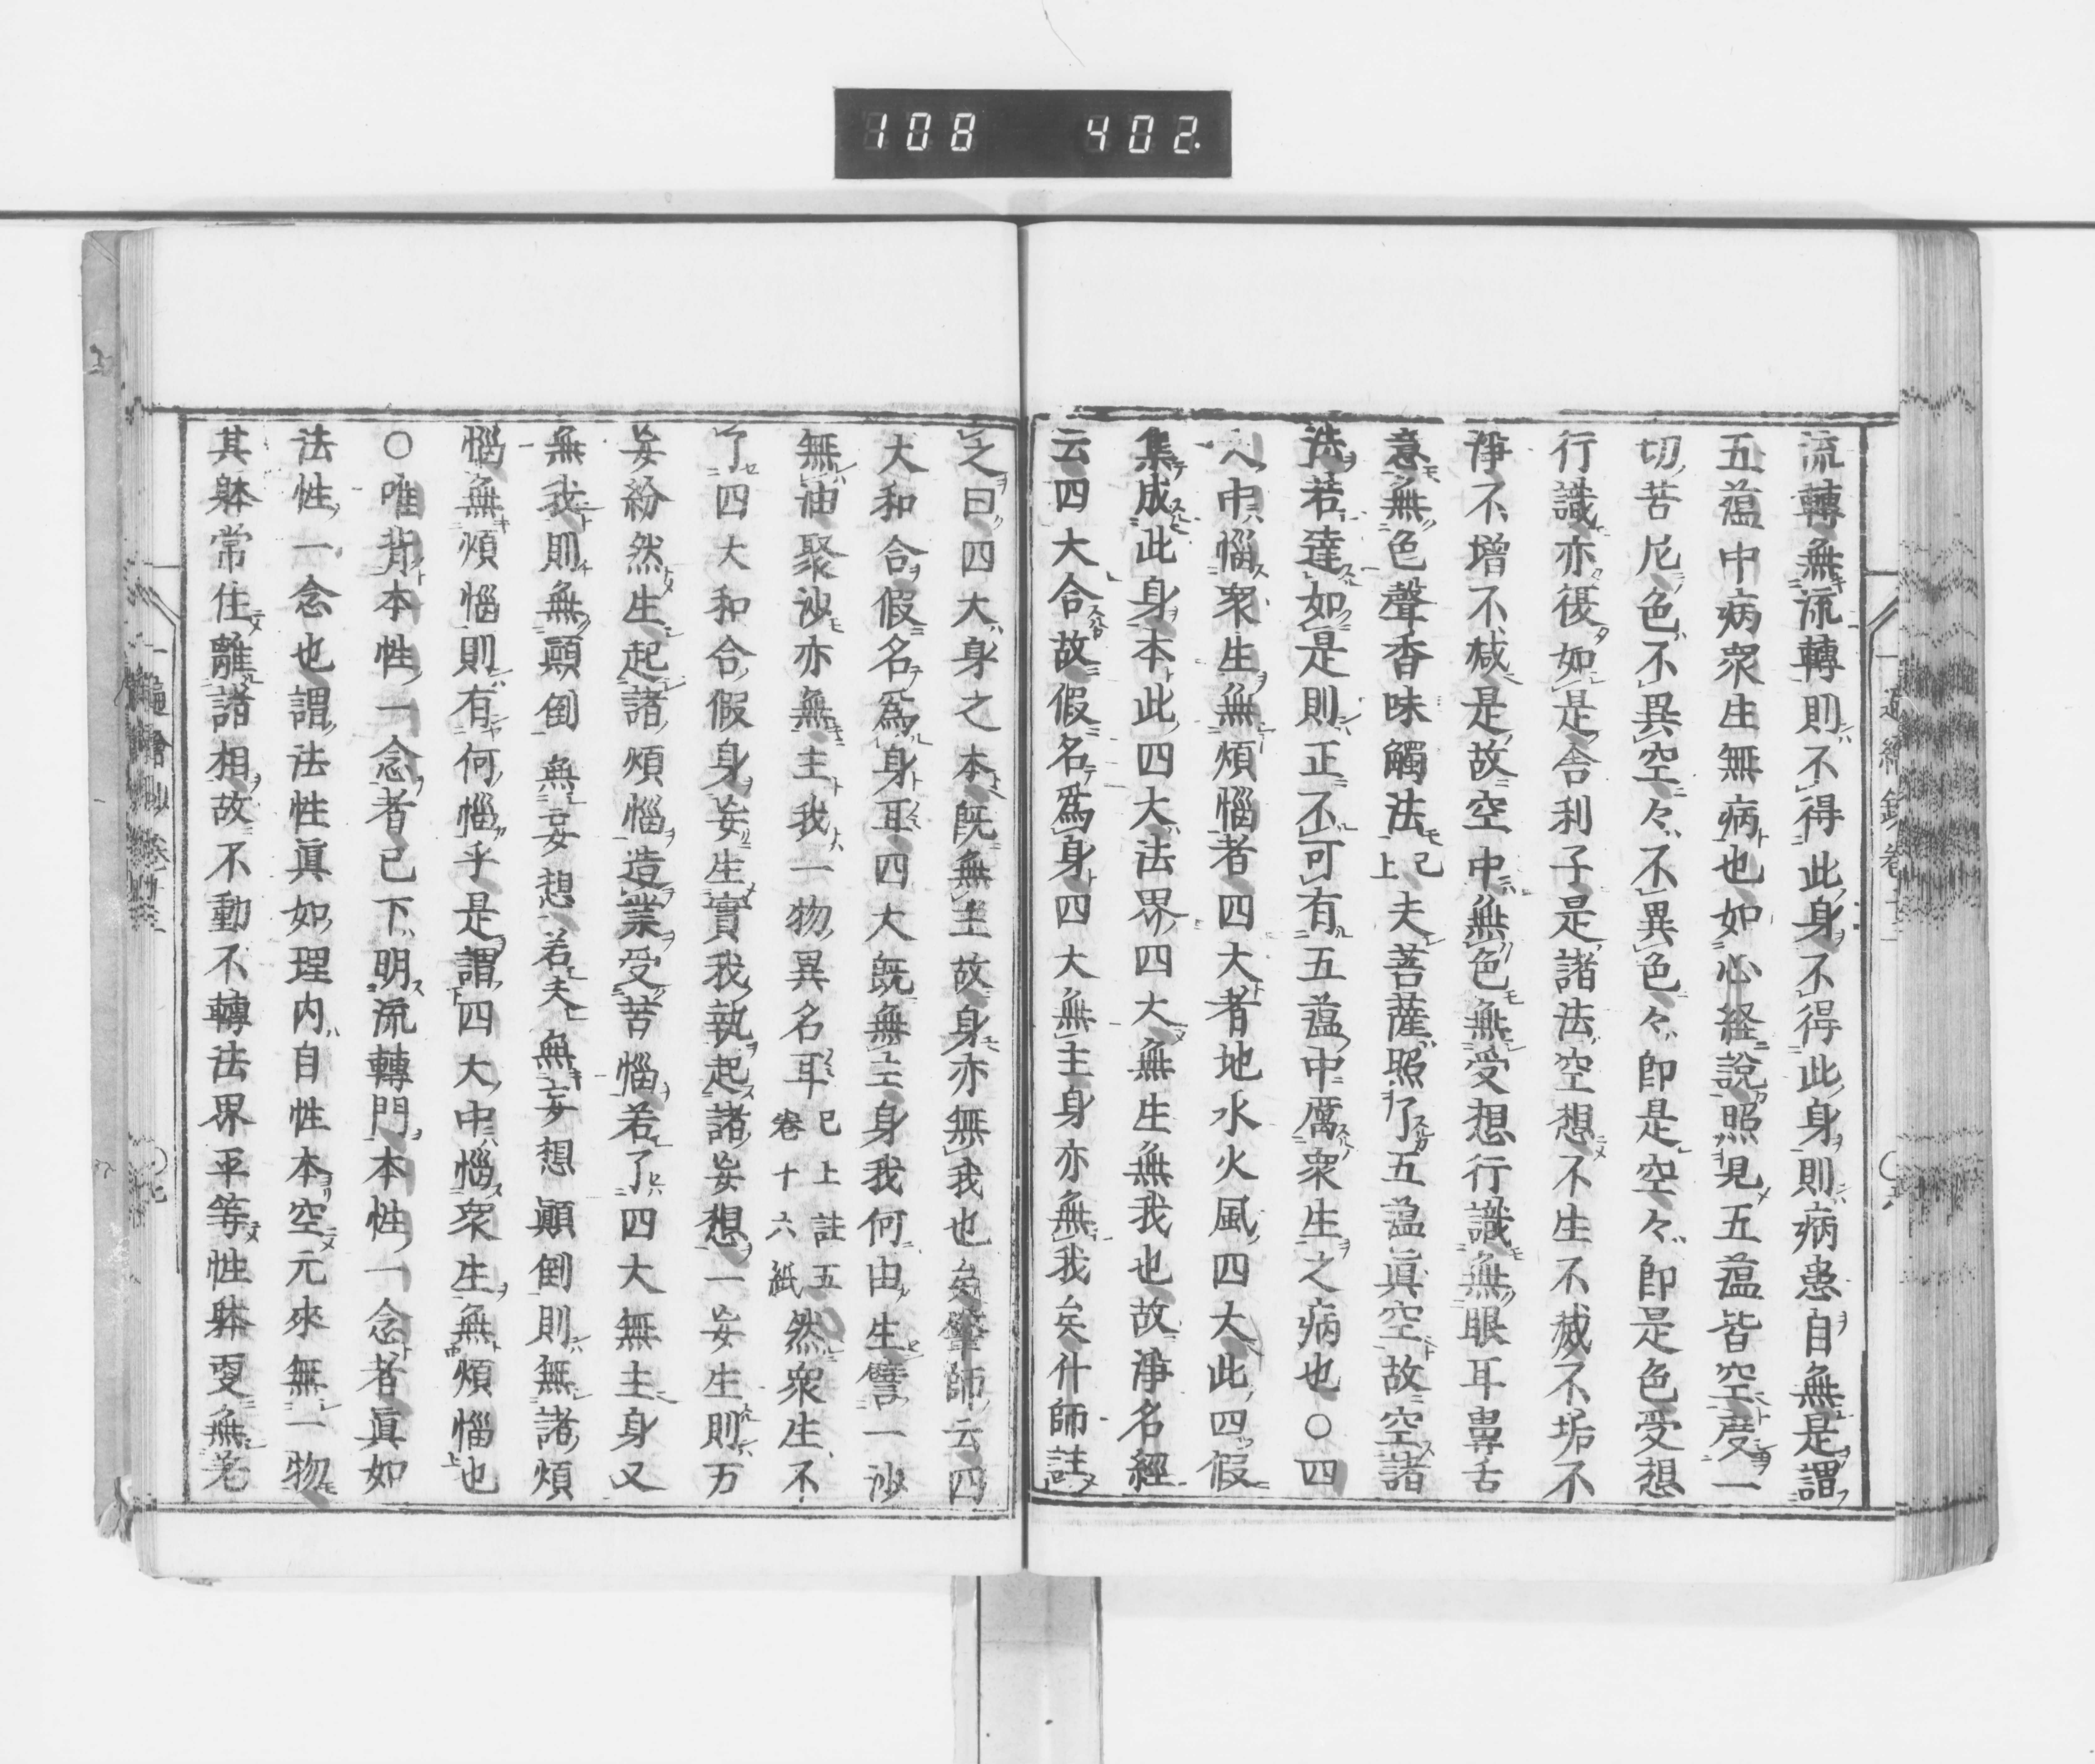 108 402.
流轉無流轉則不得此身不得此身則病患自無是謂
五蕰中病衆生無病也如心経說照見五蕰皆空度一
切苦厄色不異空々不異色々即是空々即是色受想
行識亦復如是舎利子是諸法空想不生不滅不垢不
淨不增不减是故空中無色無受想行識無眼耳鼻舌
意無色聲香味觸法已上夫菩薩照了五蕰眞空故空諸
法若達如是則正不可有五蕰中厲衆生之病也○四
大中惱衆生無煩惱者四大者地水火風四大此四假
集成此身本此四大法界四大無生無我也故淨名經
云四大合故假名爲身四大無主身亦無我矣什師註
之曰四大身之本既無主故身亦無我也矣肇師云四
大和合假名爲身耳四大既無主身我何由生譬一沙
無油聚沙亦無主我一物異名耳已上註五卷十六紙然衆生不
了四大和合假身妄生實我執起諸妄想一妄生則万
妄紛然生起諸煩惱造業受苦惱若了四大無主身又
無我則無顚倒無妄想若夫無妄想顚倒則無諸煩
惱無煩惱則有何惱乎是謂四大中惱衆生無煩惱也
○唯背本性一念者已下明流轉門本性一念者眞如
法性一念也謂法性眞如理内自性本空元來無一物
其躰常住離諸相故不動不轉法界平等性躰更無老